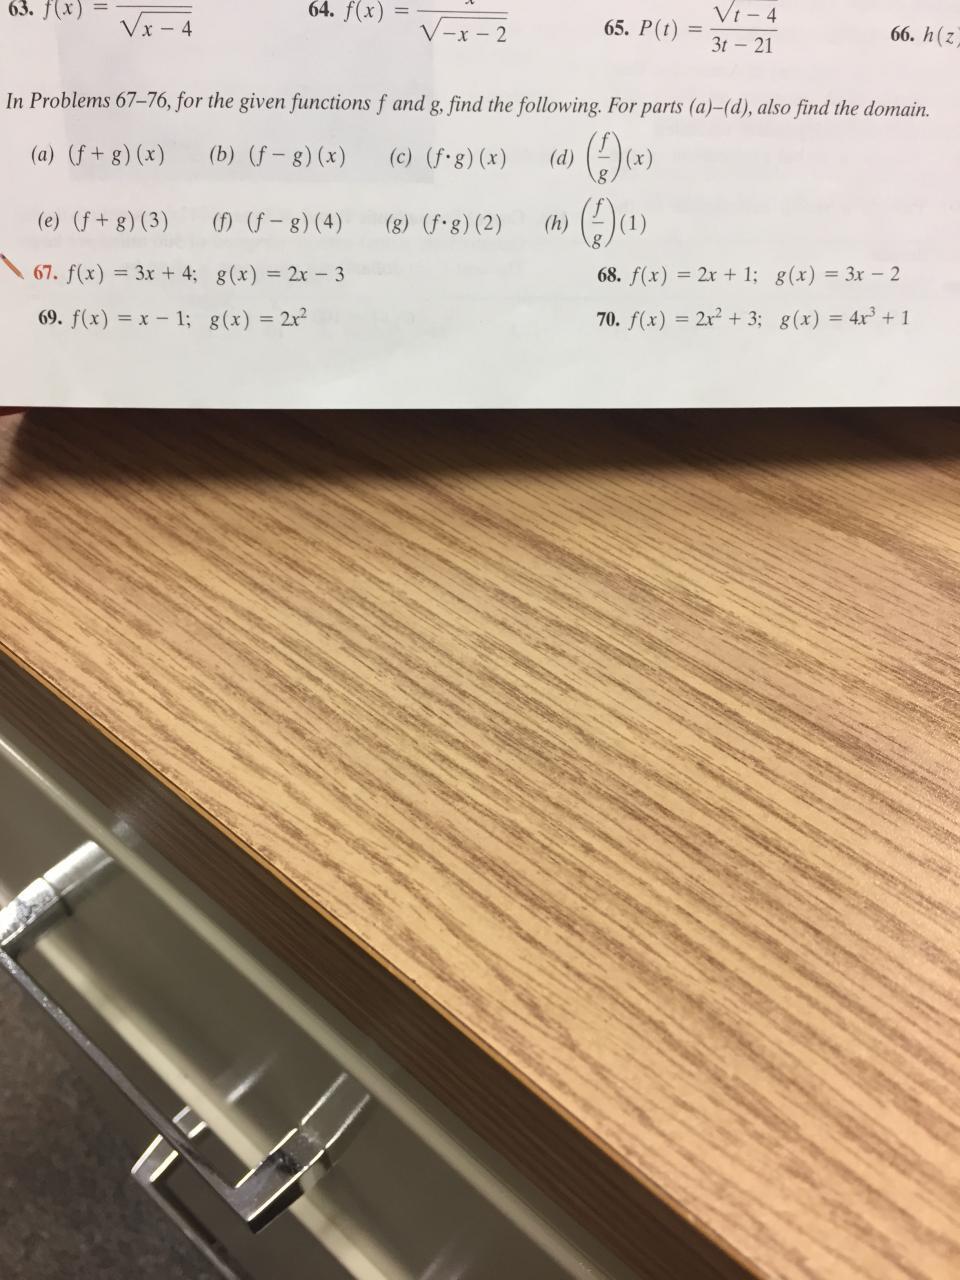 63. f(x) = ─── √(x − 4) 64. f(x) = x/√(−x − 2) 65. P(t) = √(t − 4)/(3t − 21) 66. h(z)
In Problems 67–76, for the given functions f and g, find the following. For parts (a)–(d), also find the domain.
(a) (f + g)(x) (b) (f − g)(x) (c) (f·g)(x) (d) (f/g)(x)
(e) (f + g)(3) (f) (f − g)(4) (g) (f·g)(2) (h) (f/g)(1)
67. f(x) = 3x + 4; g(x) = 2x − 3 68. f(x) = 2x + 1; g(x) = 3x − 2
69. f(x) = x − 1; g(x) = 2x² 70. f(x) = 2x² + 3; g(x) = 4x³ + 1